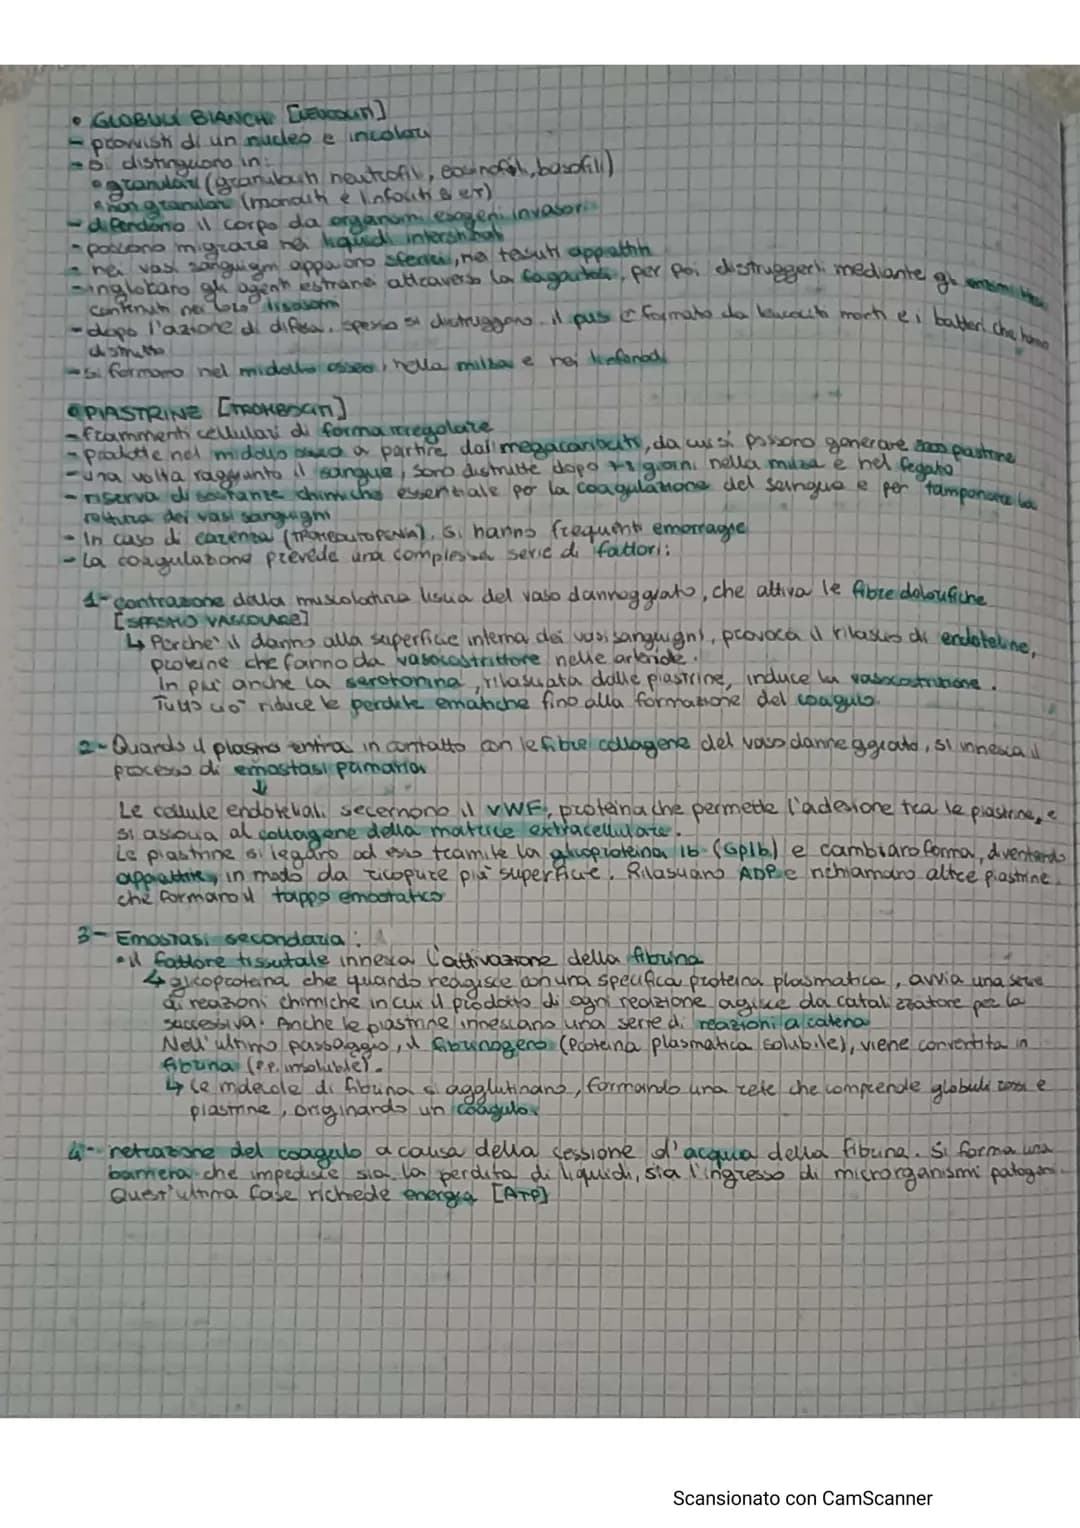 • GLOBULI BIANCHI [LEUCOCITI]
- provvisti di un nucleo e incolori
- si distinguono in:
• granulari (granulociti neutrofili, eosinofili, basofili)
• non granulari (monociti e linfociti B e T)
- difendono il corpo da organismi esogeni invasori
- possono migrare nei liquidi interstiziali
- nei vasi sanguigni appaiono sferici, nei tessuti appiattiti
- inglobano gli agenti estranei attraverso la fagocitosi, per poi distruggerli mediante gli enzimi litici
contenuti nei loro lisosomi
- dopo l'azione di difesa, spesso si distruggono. il pus è formato da leucociti morti e i batteri che hanno
distrutto
- si formano nel midollo osseo, nella milza e nei linfonodi
• PIASTRINE [TROMBOCITI]
- frammenti cellulari di forma irregolare
- prodotte nel midollo osseo a partire dai megacariociti, da cui si possono generare piastrine
- una volta raggiunto il sangue, sono distrutte dopo giorni nella milza e nel fegato
- riserva di sostanze chimiche essenziale per la coagulazione del sangue e per tamponare la
rottura dei vasi sanguigni
- In caso di carenza (TROMBOCITOPENIA), si hanno frequenti emorragie
- La coagulazione prevede una complessa serie di fattori:
1- contrazione della muscolatura liscia del vaso danneggiato, che attiva le fibre dolorifiche
[SPASMO VASCOLARE]
↳ Perche' il danno alla superficie interna dei vasi sanguigni, provoca il rilascio di endoteline,
proteine che fanno da vasocostrittore nelle arteriole.
In piu' anche la serotonina, rilasciata dalle piastrine, induce la vasocostrizione.
Tutto ciò riduce le perdite ematiche fino alla formazione del coagulo.
2- Quando il plasma entra in contatto con le fibre collagene del vaso danneggiato, si innesca il
processo di emostasi primaria
↓
Le cellule endoteliali secernono il vWF, proteina che permette l'adesione tra le piastrine, e
si associa al collagene della matrice extracellulare.
Le piastrine si legano ad esso tramite la glicoproteina 1b (Gp1b) e cambiano forma, diventando
appiattite, in modo da ricoprire più superficie. Rilasciano ADP e richiamano altre piastrine
che formano il tappo emostatico
3- Emostasi secondaria:
• il fattore tissutale innesca l'attivazione della fibrina
↳ glicoproteina che quando reagisce con una specifica proteina plasmatica, avvia una serie
di reazioni chimiche in cui il prodotto di ogni reazione agisce da catalizzatore per la
successiva. Anche le piastrine innescano una serie di reazioni a catena
Nell'ultimo passaggio, il fibrinogeno (proteina plasmatica solubile), viene convertita in
fibrina (p.p. insolubile).
↳ Le molecole di fibrina si agglutinano, formando una rete che comprende globuli rossi e
piastrine, originando un coagulo.
4- retrazione del coagulo a causa della cessione d'acqua della fibrina. Si forma una
barriera che impedisce sia la perdita di liquidi, sia l'ingresso di microrganismi patogeni.
Quest'ultima fase richiede energia [ATP]
Scansionato con CamScanner